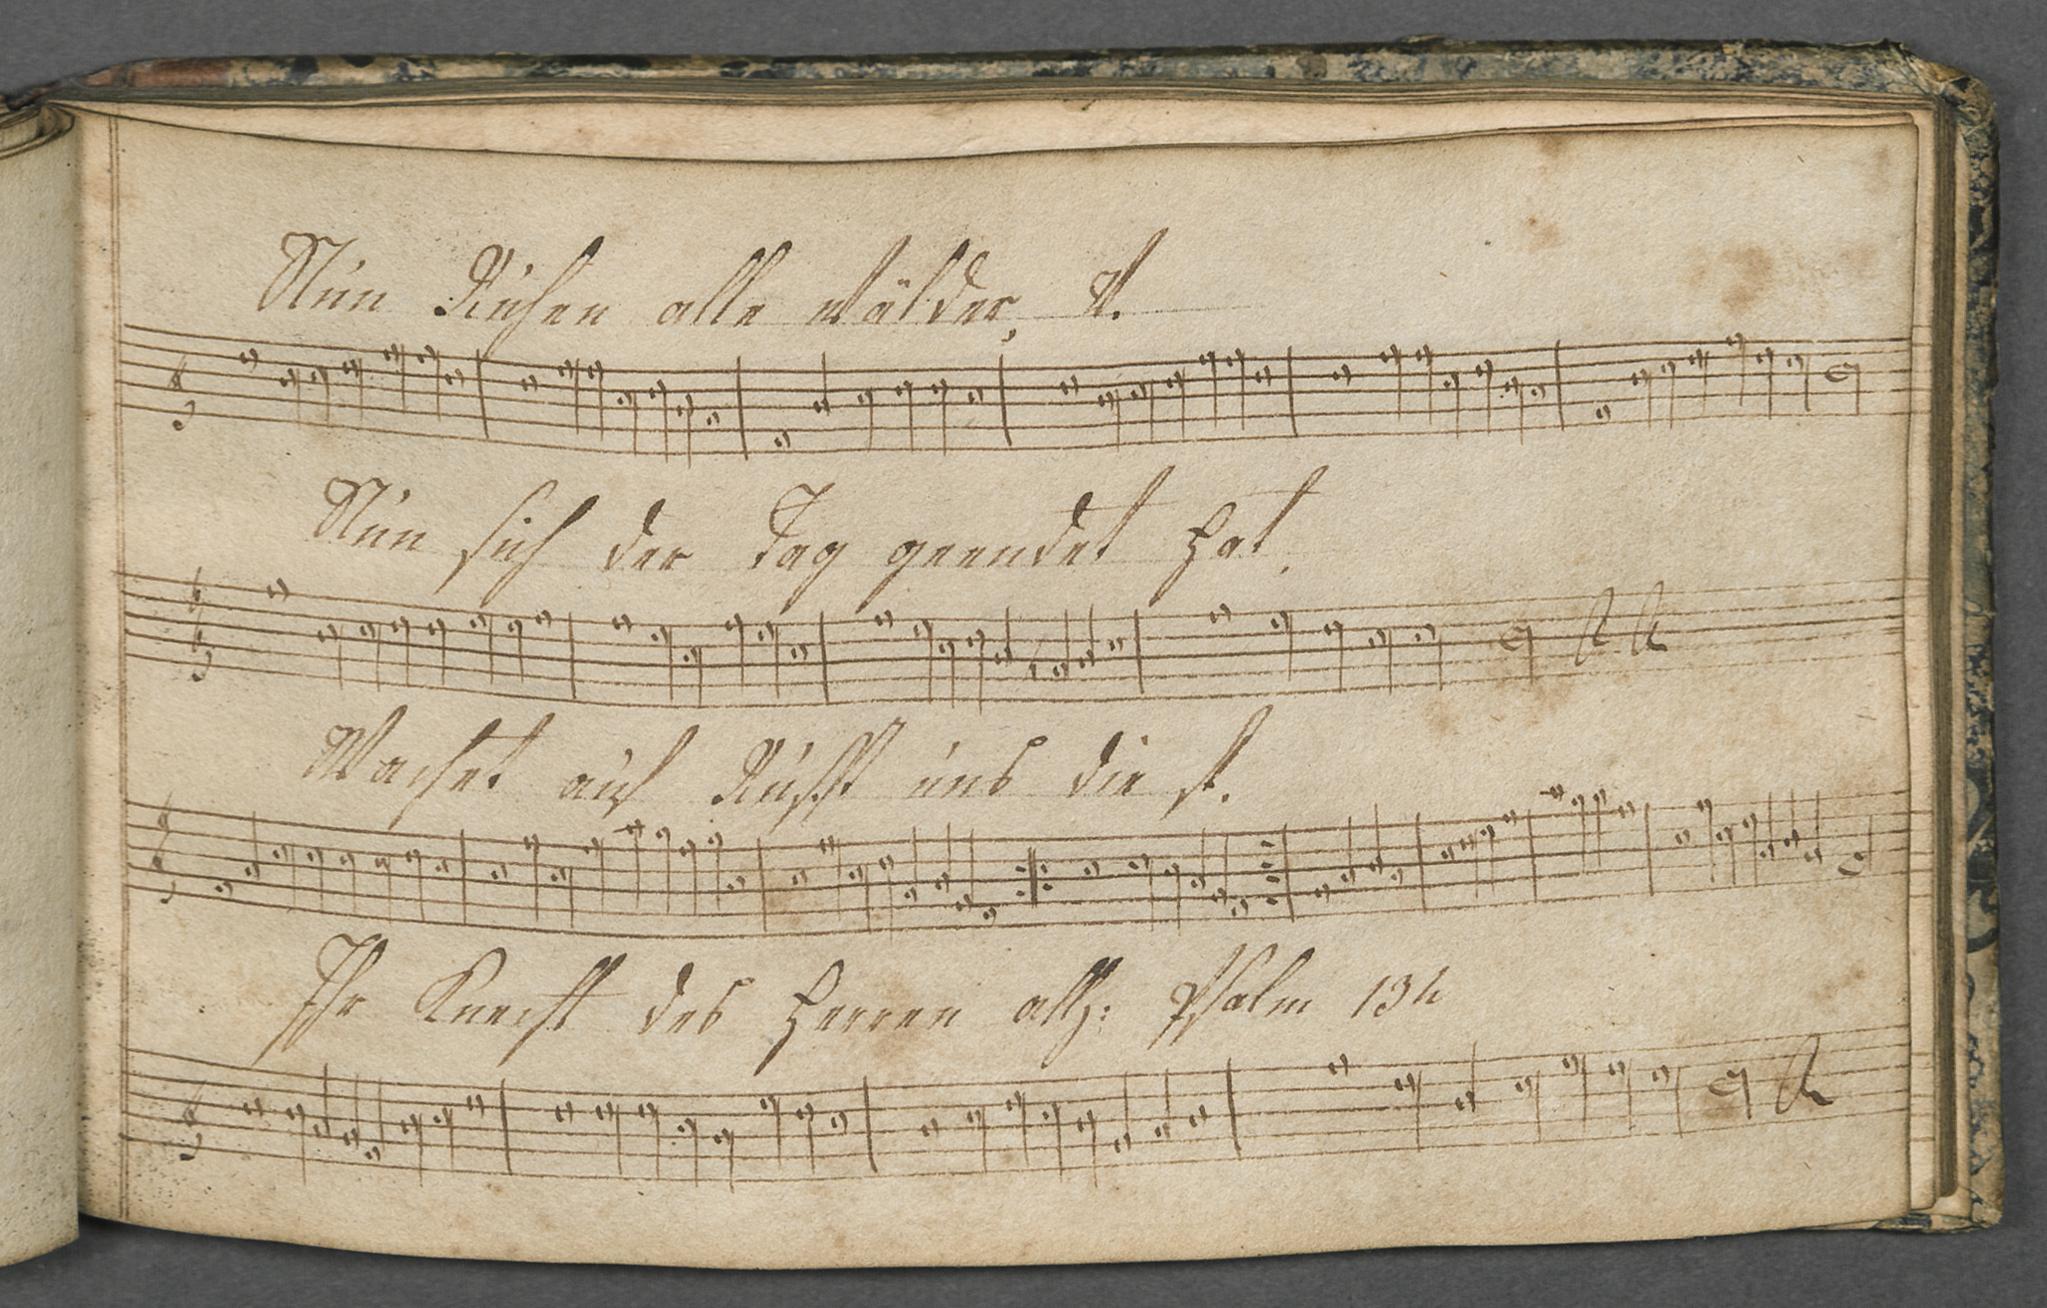 Nun Ruhen alle wälder, ꝛ.
Nun sich der Tag geendet hat.
Wachet auf Rufft uns die st.
Ihr Knecht des Herren allz: Psalm 134